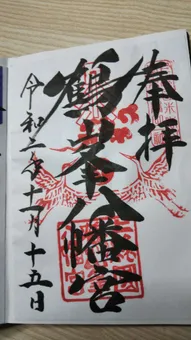 奉拝
鶴峯八幡宮
令和二年十一月十五日